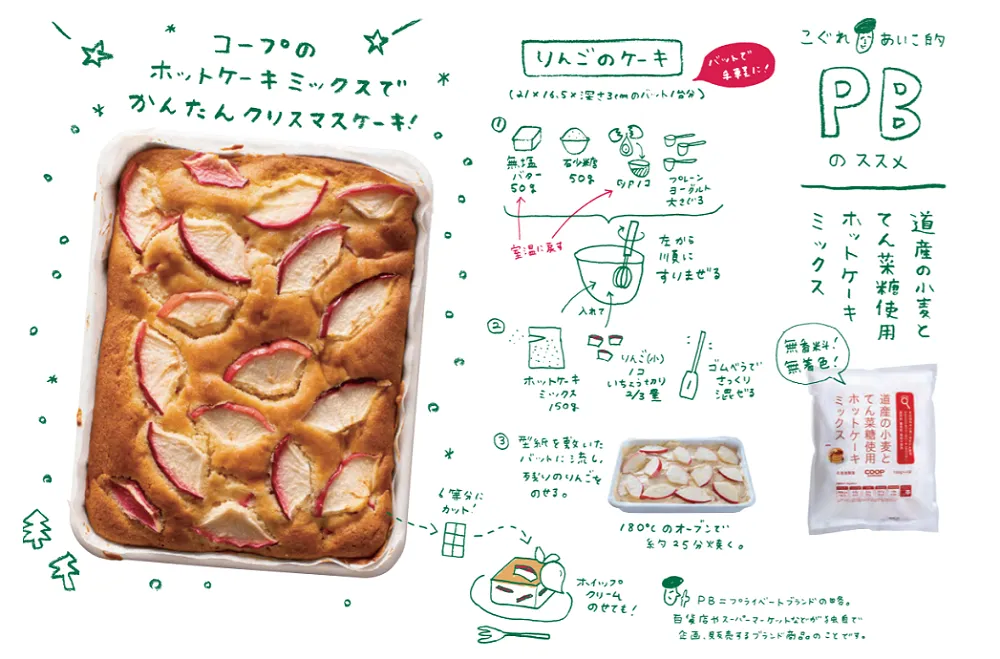 コープの
ホットケーキミックスで
かんたんクリスマスケーキ!
りんごのケーキ
バットで
手軽に!
(21×16.5×深さ3cmのバット1台分)
①
無塩
バター
50g
砂糖
50g
プレーン
ヨーグルト
大さじ3
室温に戻す
左から
順に
すりまぜる
入れて
②
ホットケーキ
ミックス
150g
りんご(小)
1コ
いちょう切り
2/3量
ゴムべらで
さっくり
混ぜる
③ 型紙を敷いた
バットに流し、
残りのりんごを
のせる。
180℃のオーブンで
約25分焼く。
6等分に
カット!
ホイップ
クリーム
のせても!
こぐれ あいこ的
PB
のススメ
道産の小麦と
てん菜糖使用
ホットケーキ
ミックス
無香料!
無着色!
道産の小麦と
てん菜糖使用
ホットケーキ
ミックス
COOP
PB=プライベートブランドの略。
百貨店やスーパーマーケットなどが独自で
企画、販売するブランド商品。のことです。